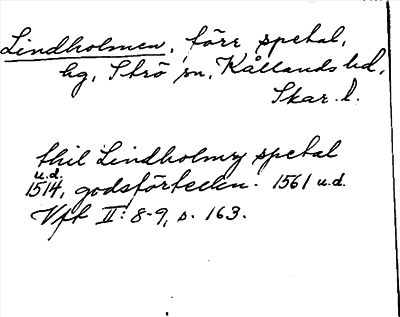 Lindholmen, förr spetal,
hg, Strö sn, Kållands hd,
Skar. l.
thil Lindholmz spetal
u.d.
1514, godsförteckn. 1561 u.d.
Vft II: 8-9, s. 163.